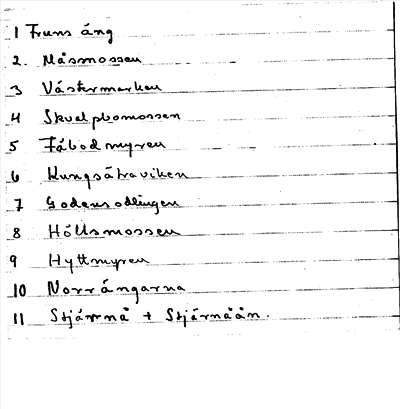 1 Fruns äng
2. Måsmossen
3 Västermarken
4 Skvalpbomossen
5 Fäbodmyren
6 Kungsåtraviken
7 Godensodlingen
8 Höllsmossen
9 Hyttmyren
10 Norrängarna
11 Stjärnnå + Stjärnåån.